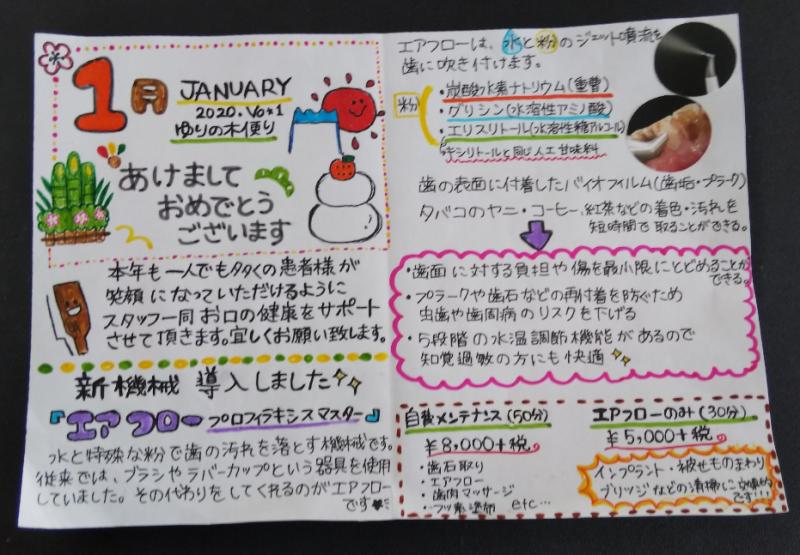 1月 JANUARY
2020. Vol1
ゆりの木便り
あけまして
おめでとう
ございます
本年も一人でも多くの患者様が
笑顔になっていただけるように
スタッフ一同お口の健康をサポート
させて頂きます。宜しくお願い致します。
新機械 導入しました
『エアフロー プロフィラキシスマスター』
水と特殊な粉で歯の汚れを落とす機械です。
従来では、ブラシやラバーカップという器具を使用
していました。その代わりをしてくれるのがエアフロー
です
エアフローは、水と粉のジェット噴流を
歯に吹き付けます。
粉
・炭酸水素ナトリウム(重曹)
・グリシン(水溶性アミノ酸)
・エリスリトール(水溶性糖アルコール)
キシリトールと同じ人工甘味料
歯の表面に付着したバイオフィルム(歯垢・プラーク)
タバコのヤニ・コーヒー、紅茶などの着色・汚れを
短時間で取ることができる。
・歯面に対する負担や傷を最小限にとどめることが
できる。
・プラークや歯石などの再付着を防ぐため
虫歯や歯周病のリスクを下げる
・5段階の水温調節機能があるので
知覚過敏の方にも快適
自費メンテナンス(50分)
¥8,000+税
・歯石取り
・エアフロー
・歯肉マッサージ
・フッ素塗布 etc…
エアフローのみ(30分)
¥5,000+税
インプラント・被せものまわり
ブリッジなどの清掃に効果的
です!!!